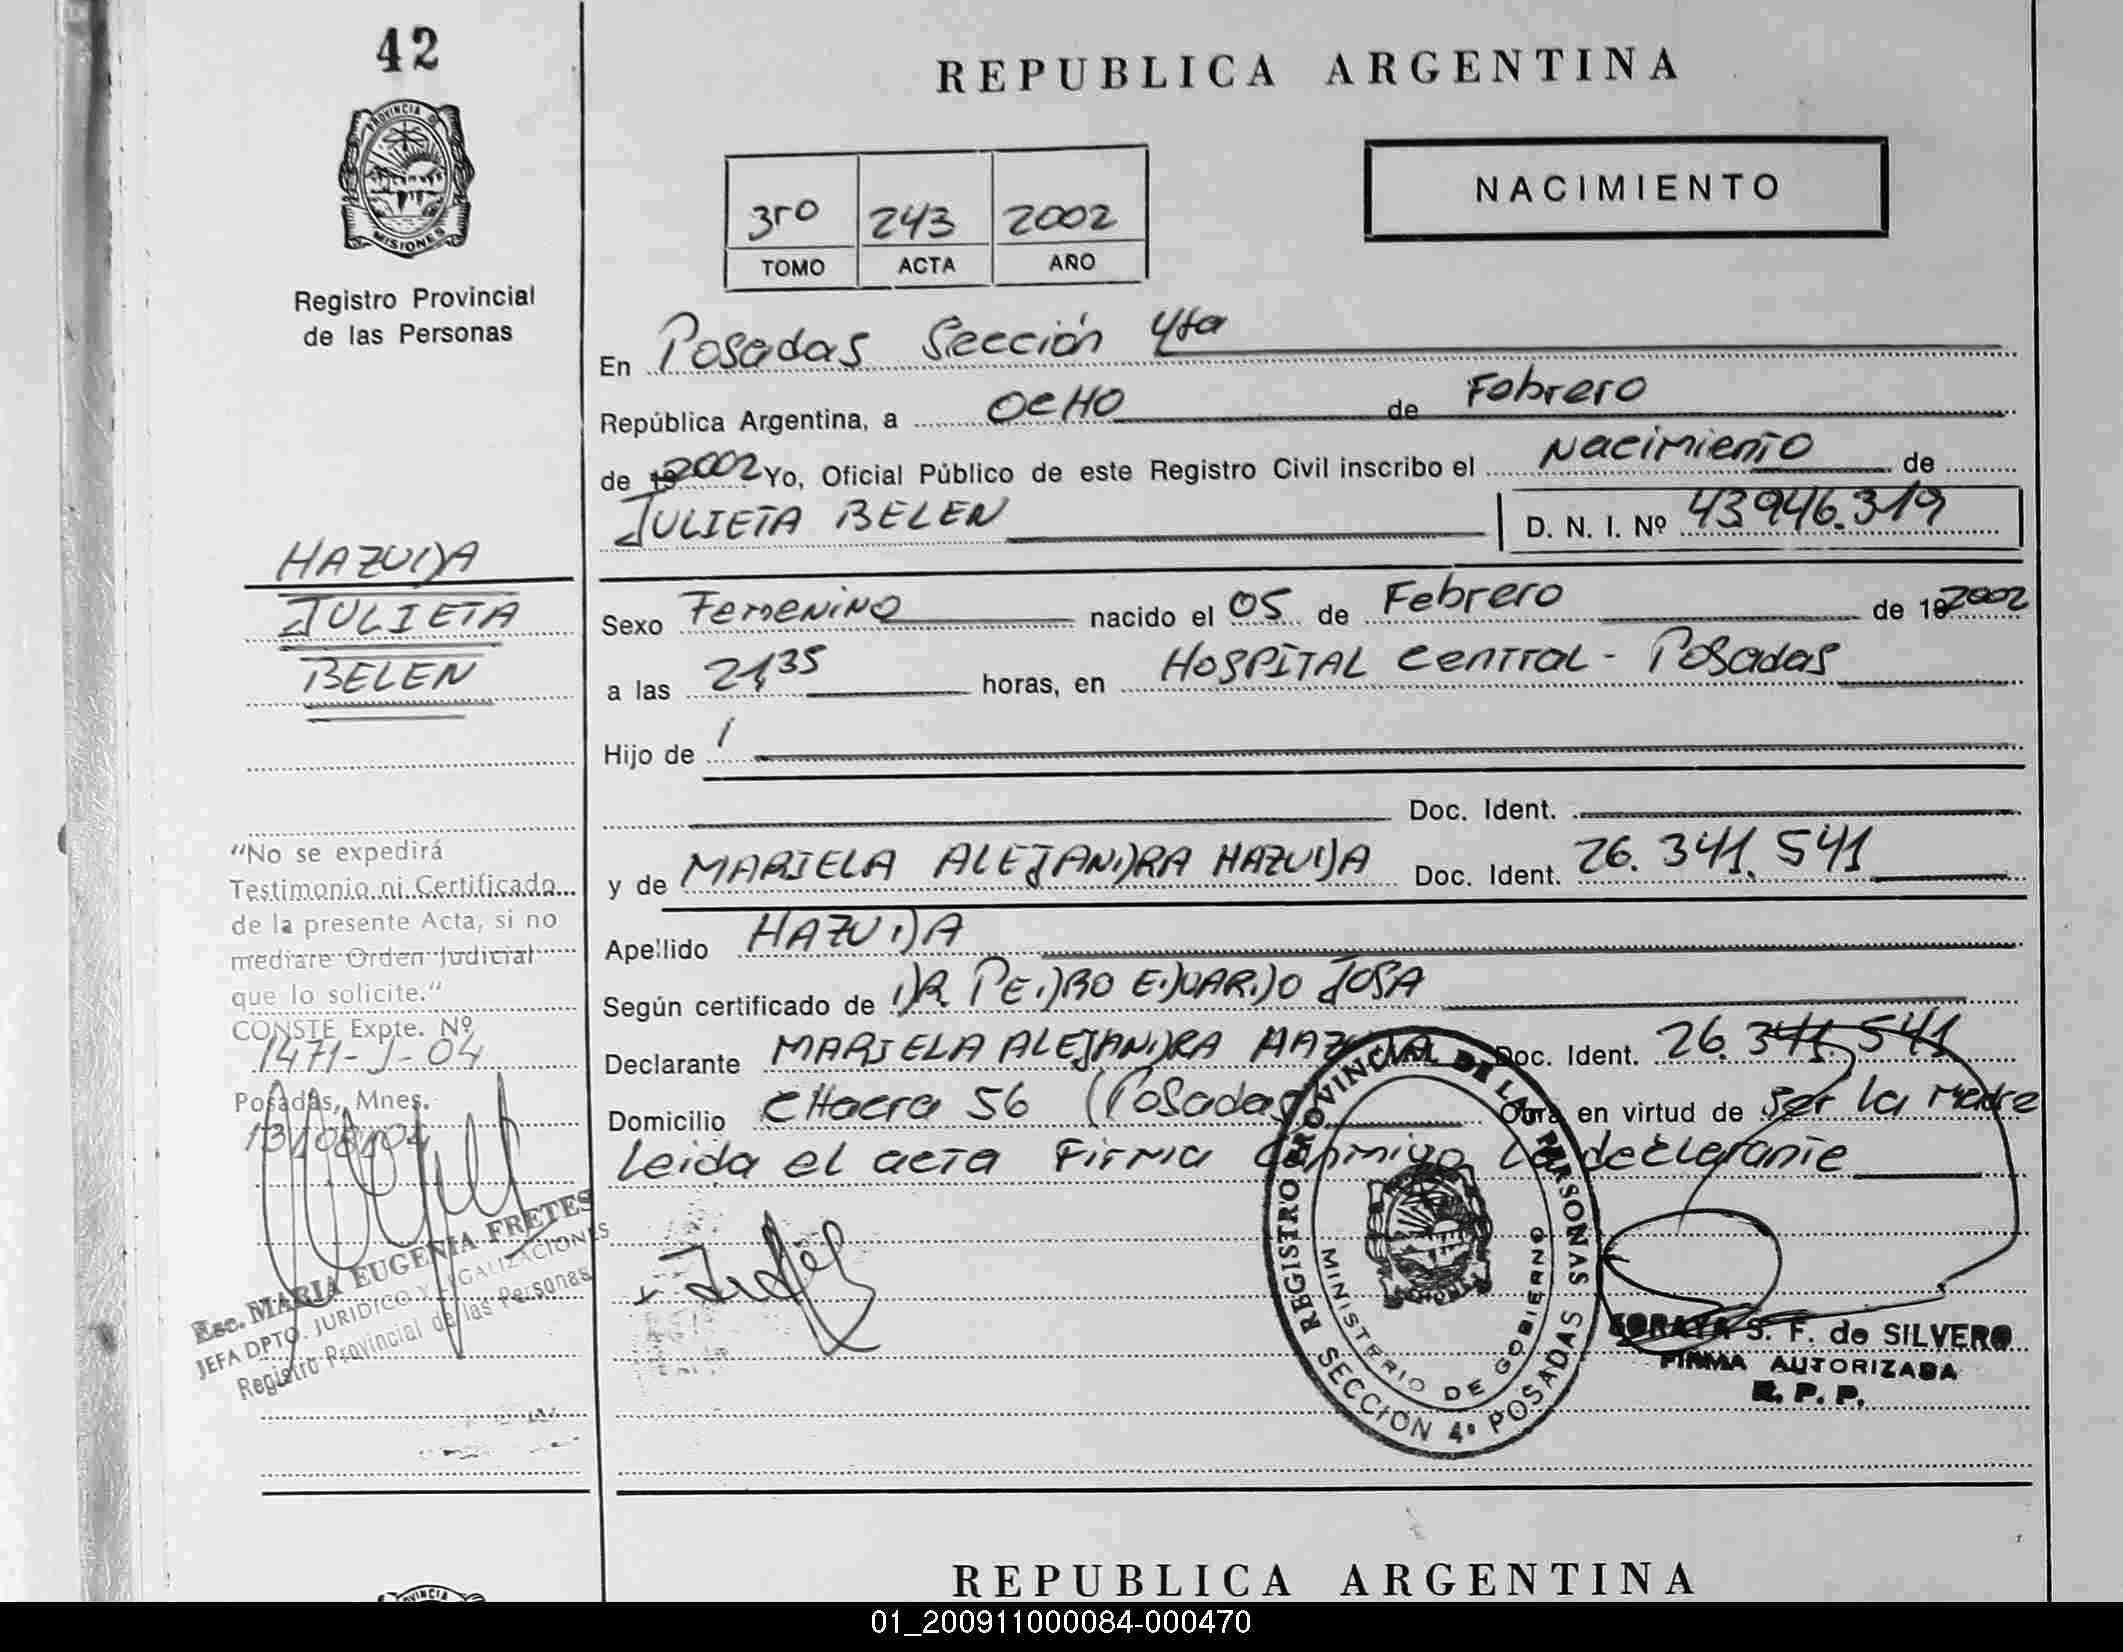 42
PROVINCIA D
MISIONES
Registro Provincial
de las Personas
REPUBLICA ARGENTINA
3ro 243 2002
TOMO ACTA AÑO
NACIMIENTO
En Posadas Sección 4ta
República Argentina, a OCHO de Febrero
de 19 2002 Yo, Oficial Público de este Registro Civil inscribo el Nacimiento de
JULIETA BELEN D. N. I. Nº 43946.319
HAZUDA
JULIETA
BELEN
Sexo Femenino nacido el 05 de Febrero de 19 2002
a las 21,35 horas, en HOSPITAL Central - Posadas
Hijo de /
Doc. Ident.
y de MARIELA ALEJANDRA HAZUDA Doc. Ident. 26.341.541
Apellido HAZUDA
Según certificado de DR PEDRO EDUARDO JOSA
Declarante MARIELA ALEJANDRA HAZUDA Doc. Ident. 26.341.541
Domicilio CHacra 56 (Posadas) Obra en virtud de ser la madre
Leida el acta Firma conmigo la declarante
"No se expedirá
Testimonio ni Certificado
de la presente Acta, si no
mediare Orden Judicial
que lo solicite."
CONSTE Expte. Nº
1471-J-04
Posadas, Mnes.
13/08/04
Esc. MARIA EUGENIA FRETES
JEFA DPTO. JURIDICO Y LEGALIZACIONES
Registro Provincial de las Personas
REGISTRO PROVINCIAL DE LAS PERSONAS
MINISTERIO DE GOBIERNO
SECCIÓN 4º POSADAS
SORAYA S. F. de SILVERO
FIRMA AUTORIZADA
R. P. P.
REPUBLICA ARGENTINA
01_200911000084-000470